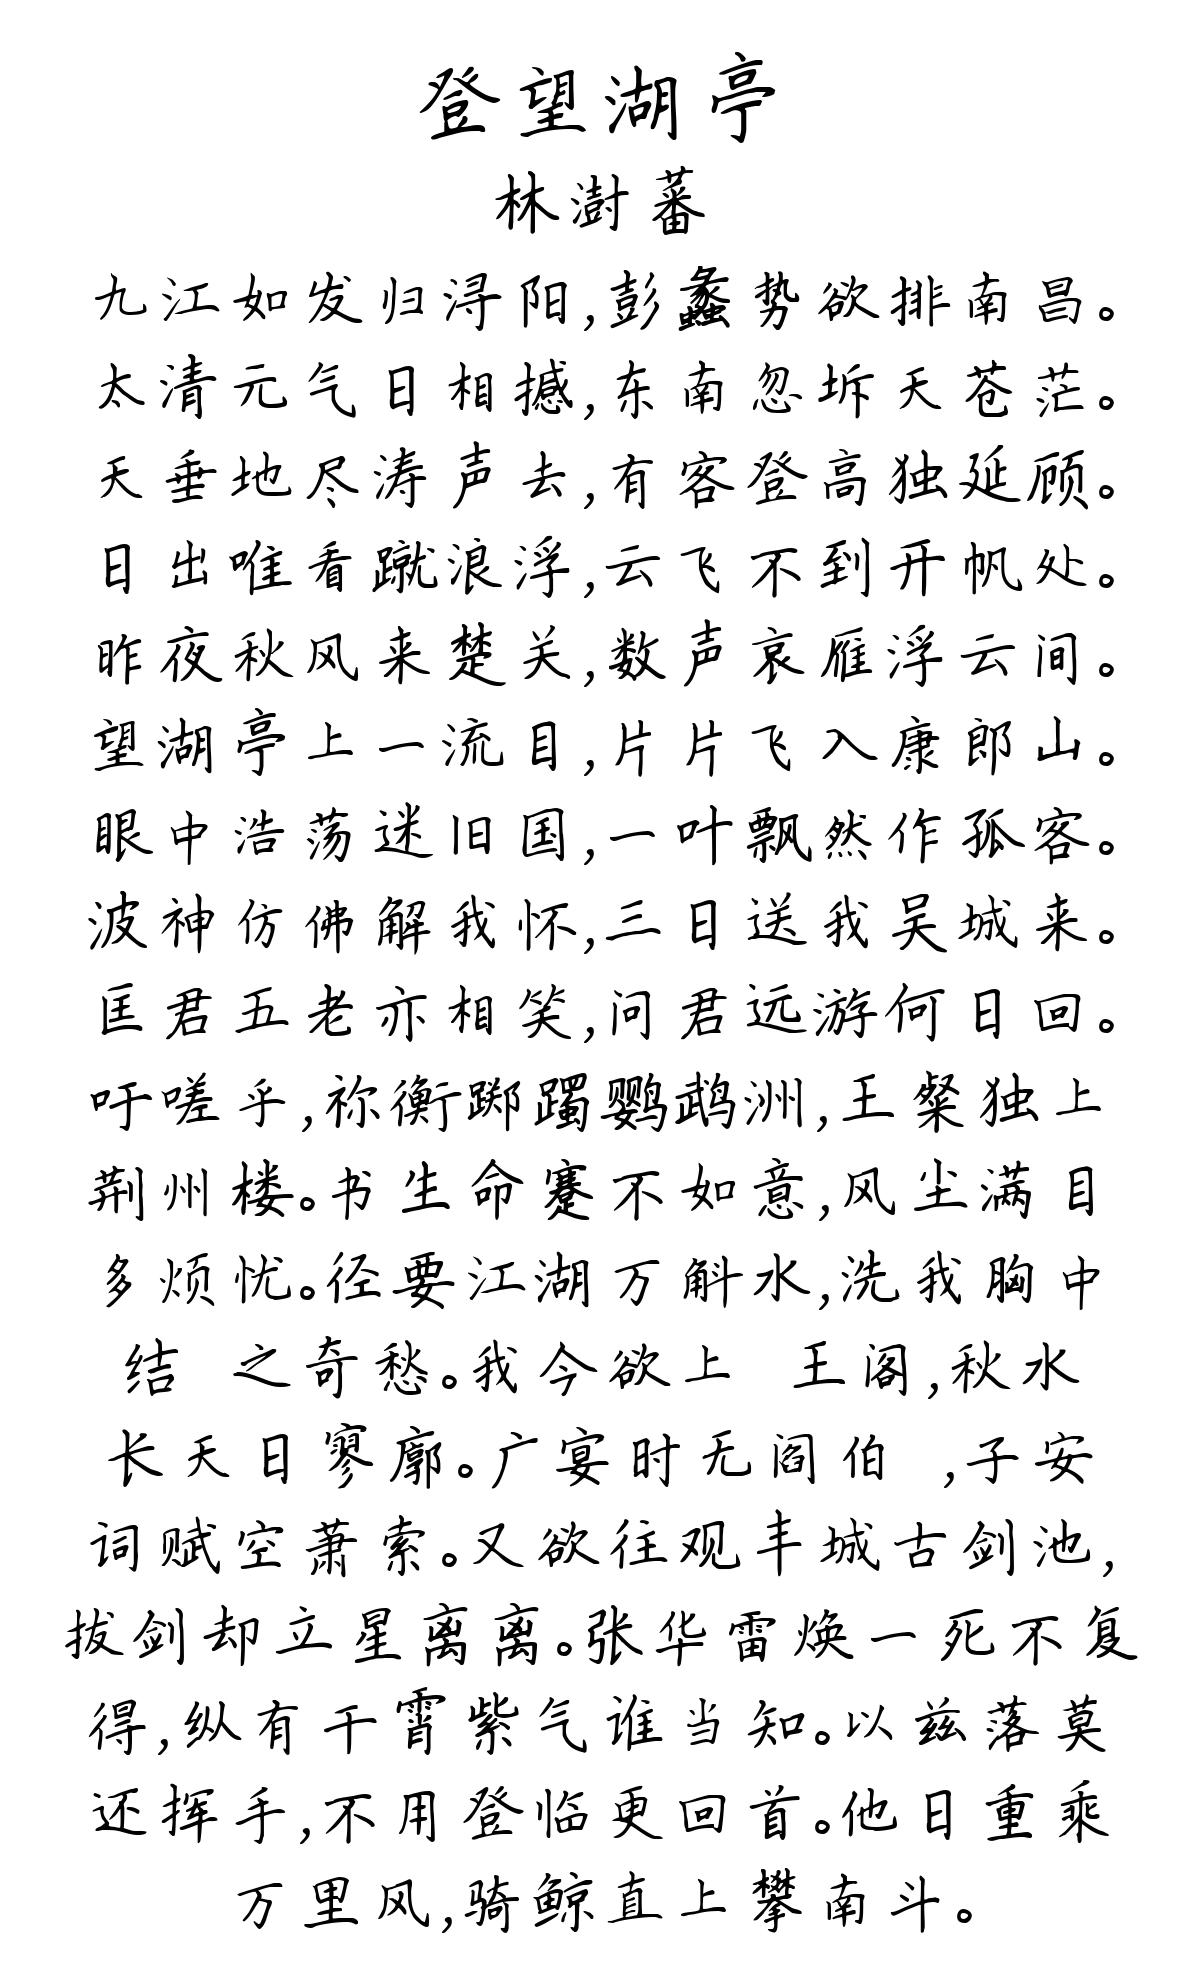 登望湖亭
林澍蕃
九江如发归浔阳,彭蠡势欲排南昌。
太清元气日相撼,东南忽坼天苍茫。
天垂地尽涛声去,有客登高独延顾。
日出唯看蹴浪浮,云飞不到开帆处。
昨夜秋风来楚关,数声哀雁浮云间。
望湖亭上一流目,片片飞入康郎山。
眼中浩荡迷旧国,一叶飘然作孤客。
波神仿佛解我怀,三日送我吴城来。
匡君五老亦相笑,问君远游何日回。
吁嗟乎,祢衡踯躅鹦鹉洲,王粲独上
荆州楼。书生命蹇不如意,风尘满目
多烦忧。径要江湖万斛水,洗我胸中
结 之奇愁。我今欲上 王阁,秋水
长天日寥廓。广宴时无阎伯 ,子安
词赋空萧索。又欲往观丰城古剑池,
拔剑却立星离离。张华雷焕一死不复
得,纵有干霄紫气谁当知。以兹落莫
还挥手,不用登临更回首。他日重乘
万里风,骑鲸直上攀南斗。